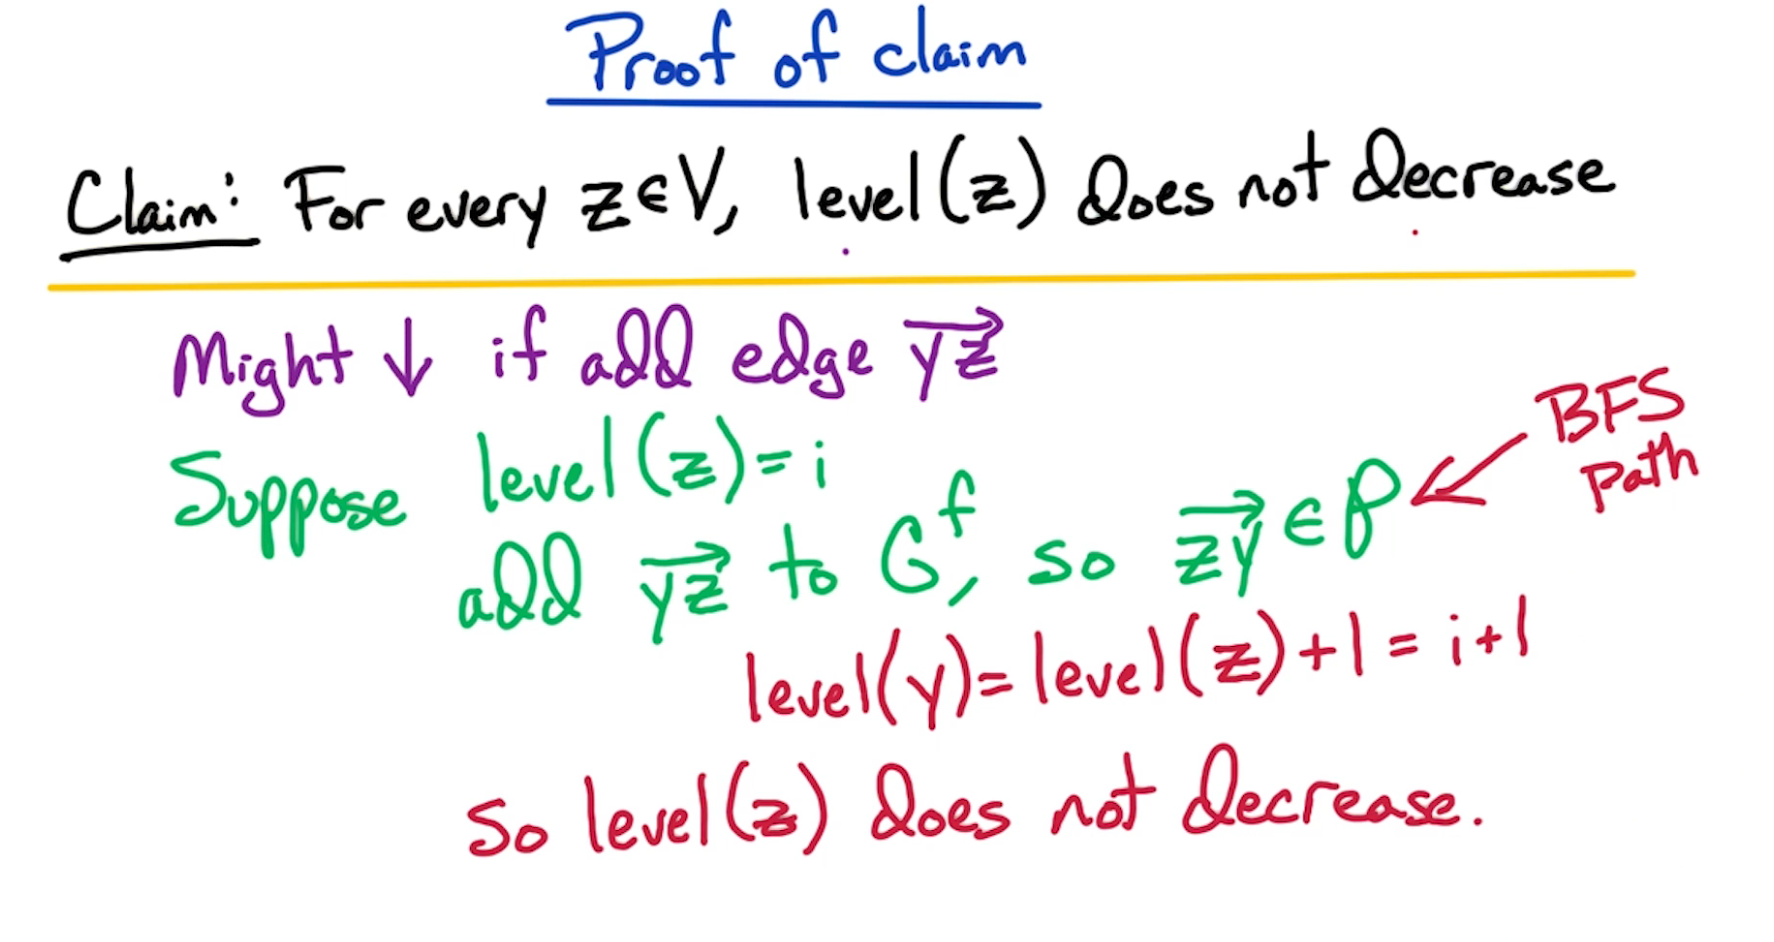 Proof of claim
Claim: For every z∈V, level(z) does not decrease
Might ↓ if add edge $\overrightarrow{yz}$
Suppose level(z)=i
add $\overrightarrow{yz}$ to $G^f$, so $\overrightarrow{zy}$ ∈ P ← BFS Path
level(y)=level(z)+1=i+1
So level(z) does not decrease.